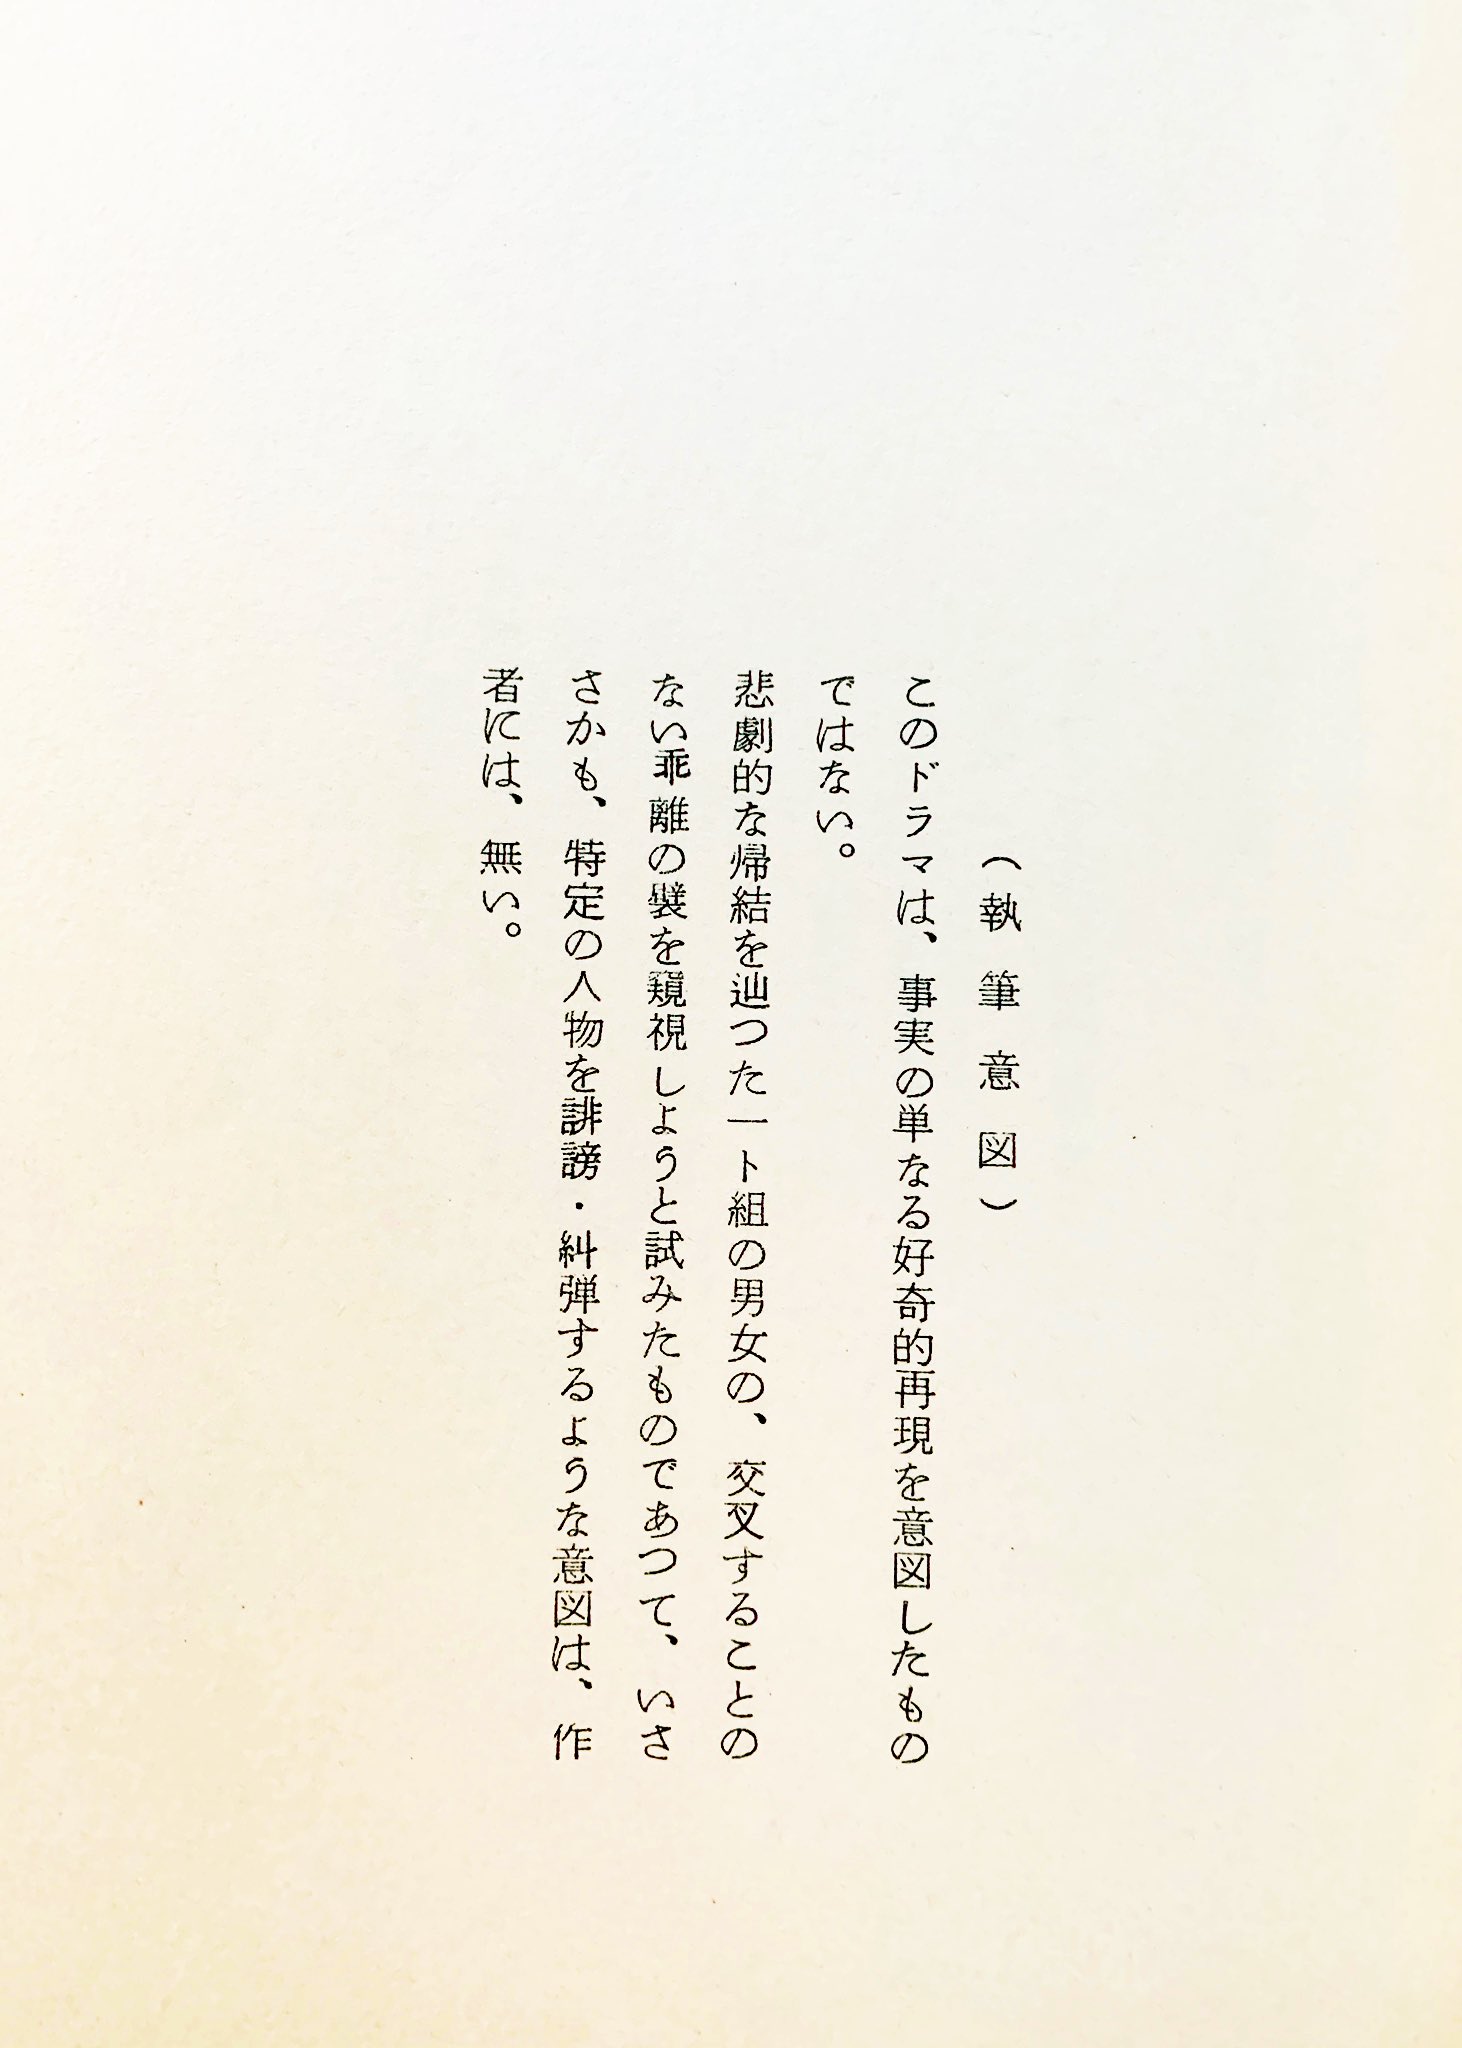 （執筆意図）
このドラマは、事実の単なる好奇的再現を意図したもの
ではない。
悲劇的な帰結を辿つた一ト組の男女の、交叉することの
ない乖離の襞を窺視しようと試みたものであつて、いさ
さかも、特定の人物を誹謗・糾弾するような意図は、作
者には、無い。